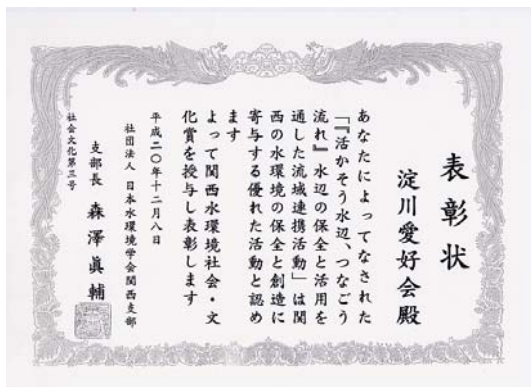 表彰状
淀川愛好会殿
あなたによってなされた
「『活かそう水辺、つなごう
流れ』水辺の保全と活用を
通した流域連携活動」は関
西の水環境の保全と創造に
寄与する優れた活動と認め
ます
よって関西水環境社会・文
化賞を授与し表彰します
平成二〇年十二月八日
社団法人 日本水環境学会関西支部
支部長 森澤眞輔
社会文化第三号